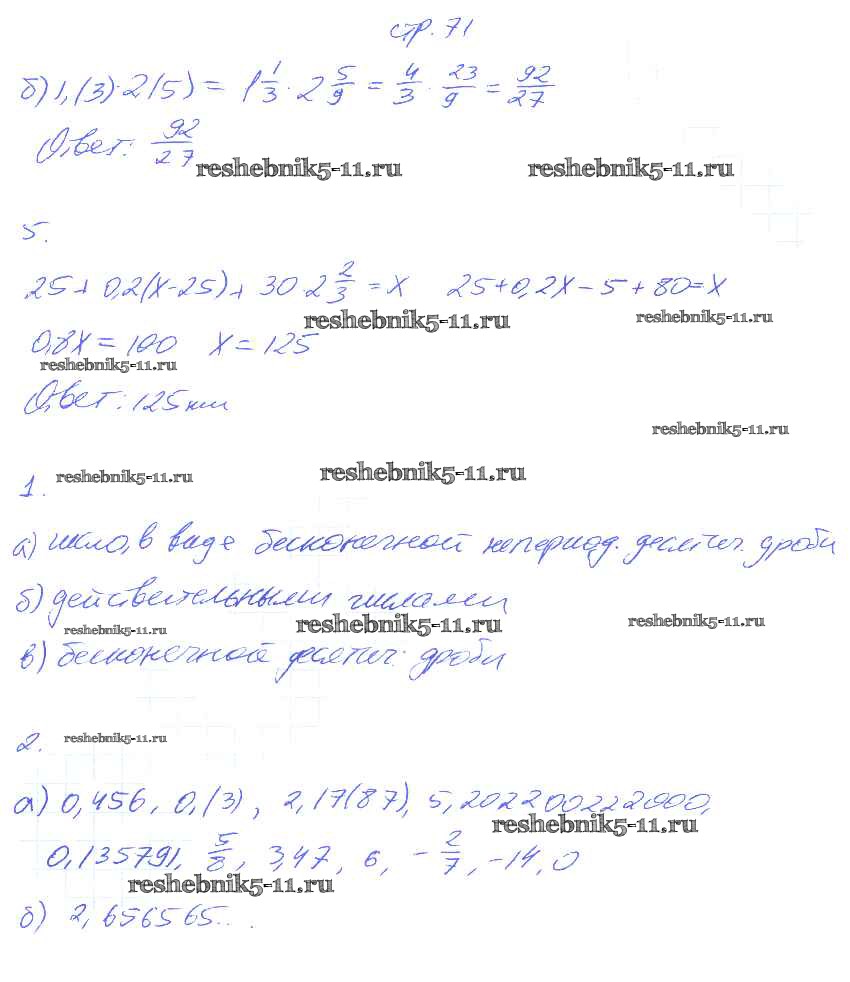 стр. 71
б) 1,(3)·2(5) = 1 1/3 · 2 5/9 = 4/3 · 23/9 = 92/27
Ответ: 92/27
reshebnik5-11.ru reshebnik5-11.ru
5.
25+ 0,2(x-25)+ 30·2 2/3 = x 25+0,2x-5+80=x
reshebnik5-11.ru reshebnik5-11.ru
0,8x = 100 x = 125
reshebnik5-11.ru
Ответ: 125 км
reshebnik5-11.ru
1. reshebnik5-11.ru reshebnik5-11.ru
а) число, в виде бесконечной непериод. десятич. дроби
б) действительными числами
reshebnik5-11.ru reshebnik5-11.ru reshebnik5-11.ru
в) бесконечной десятич. дроби
2. reshebnik5-11.ru
а) 0,456, 0,(3), 2,17(87), 5,202200222000,
reshebnik5-11.ru
0,135791, 5/8, 3,47, 6, -2/7, -14, 0
reshebnik5-11.ru
б) 2,656565...